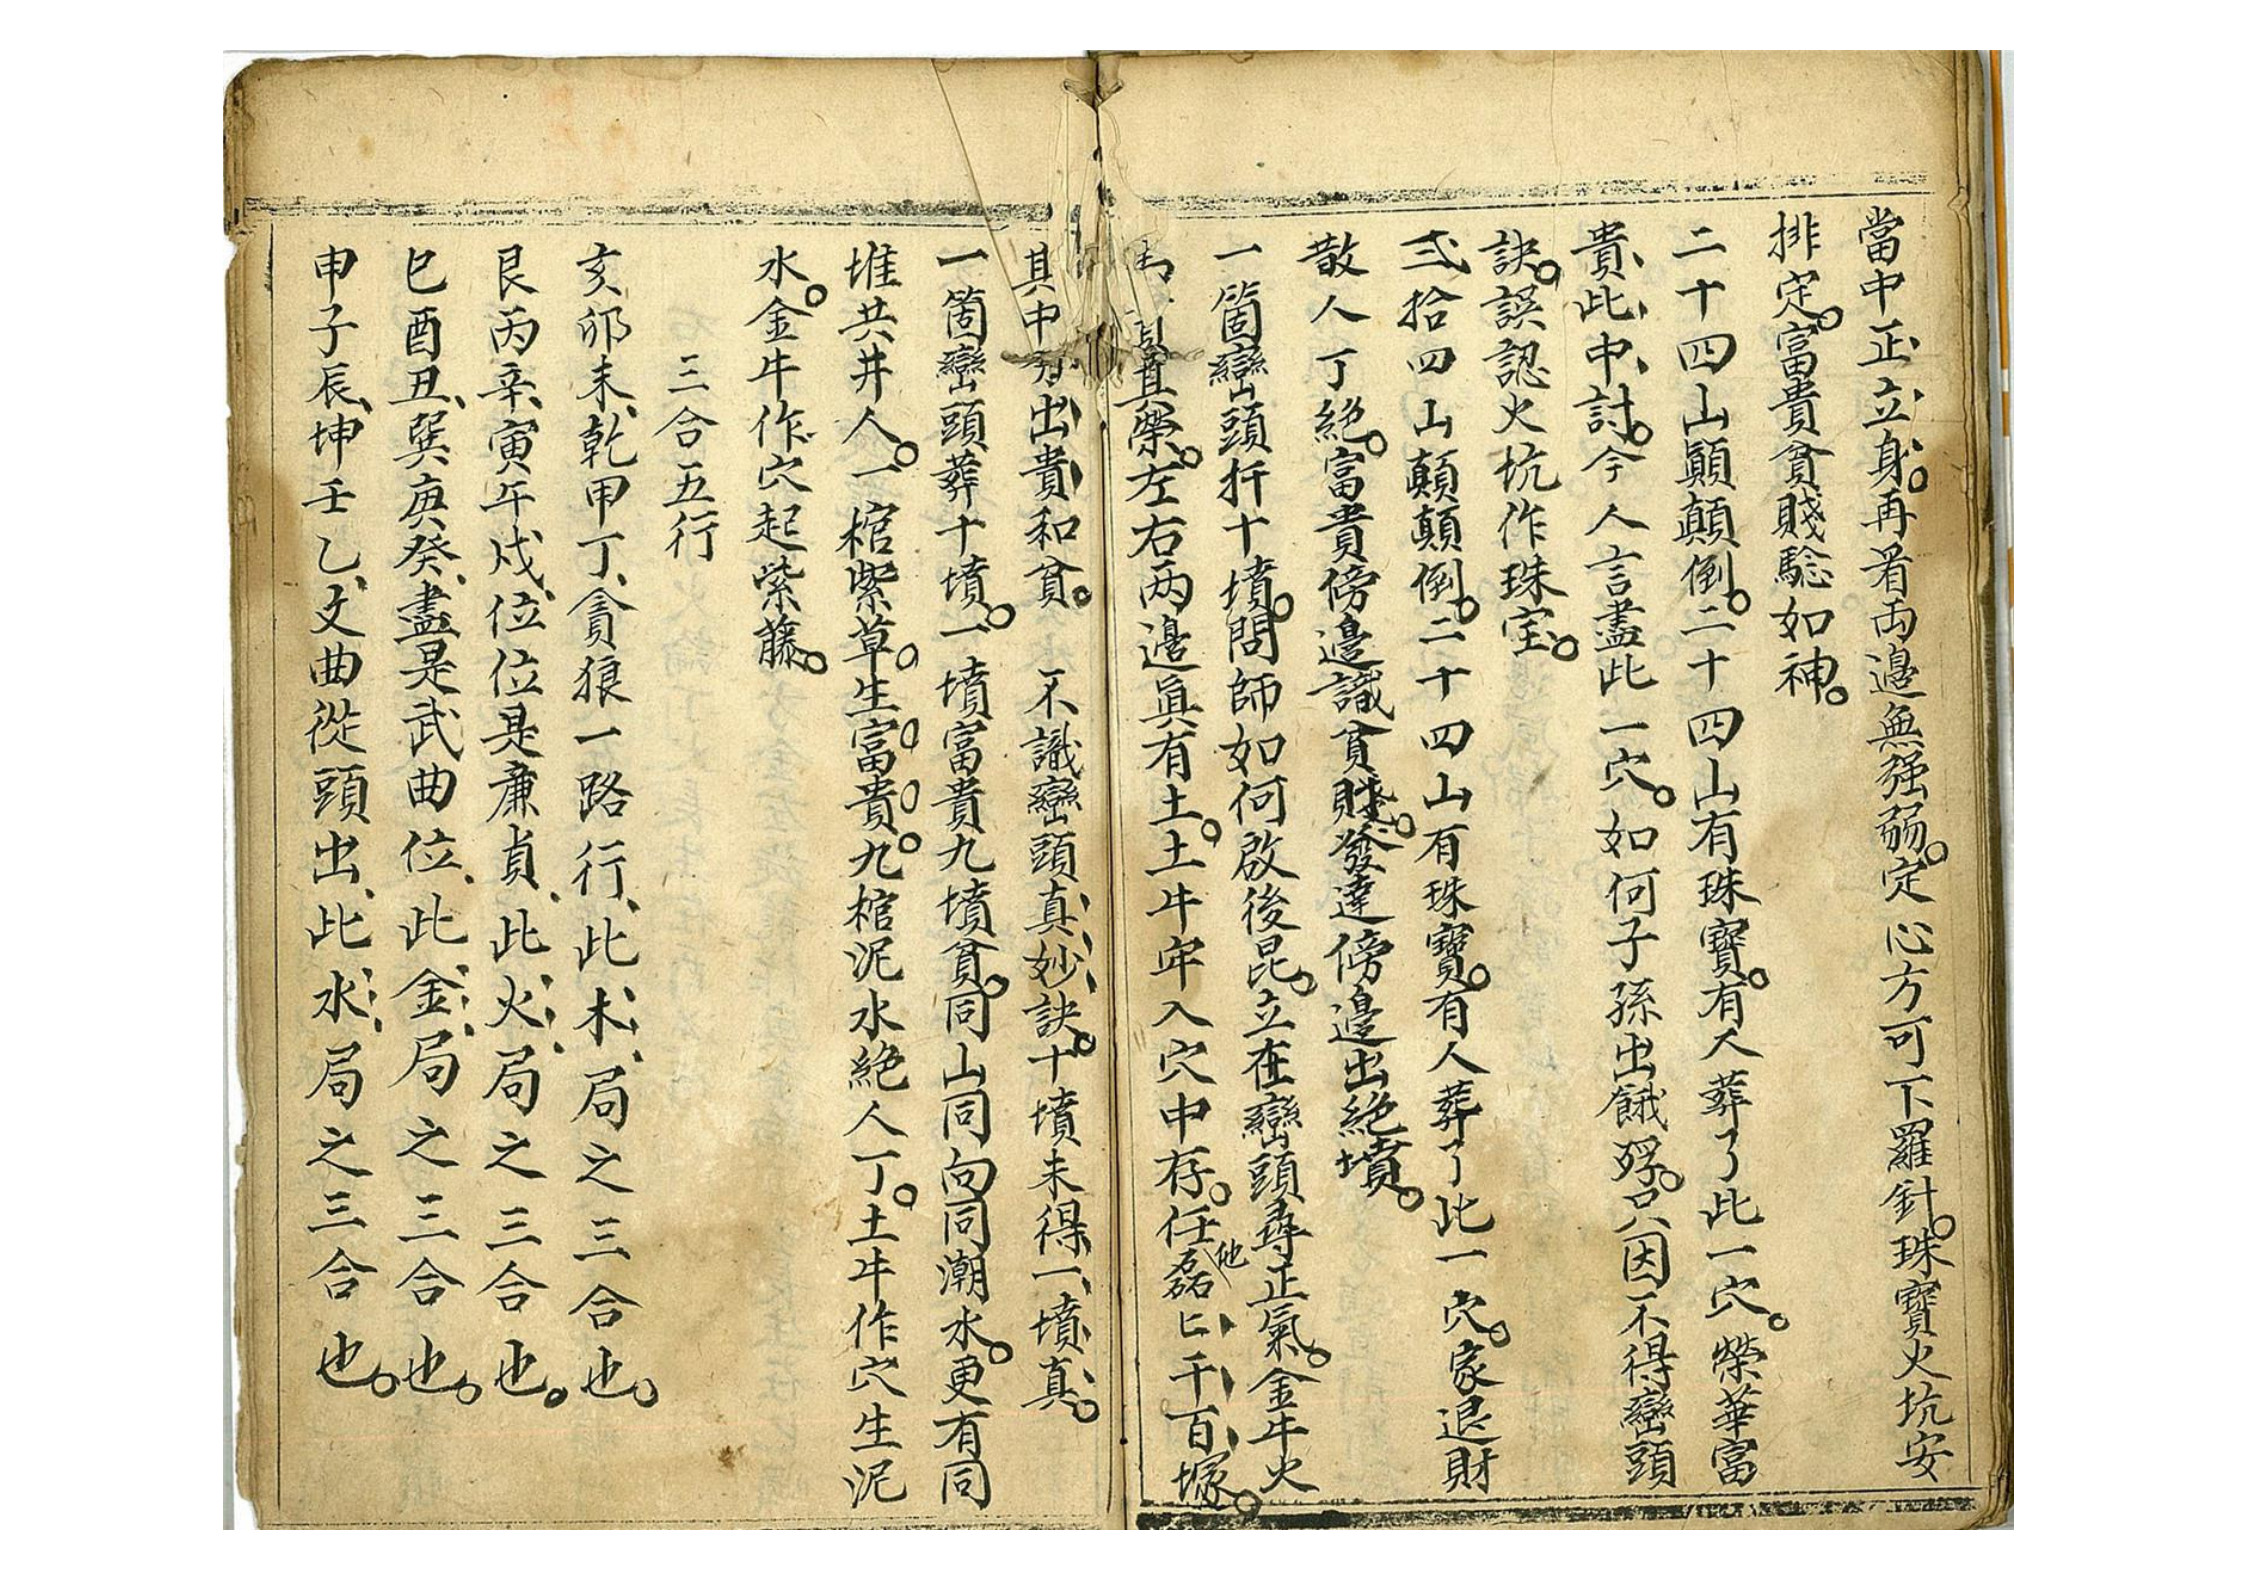 當中正立身。再看両邉無强弱。定心方可下羅針。珠寶火坑安
排定。富貴貧賤騐如神。
二十四山顚顚倒。二十四山有珠寶。有人葬了此一穴。榮華富
貴、此、中、討。今人言盡此一穴。如何子孫出餓殍。只因不得巒頭
訣。誤認火坑作珠宝。
弍拾四山顛顛倒。二十四山有珠寶。有人葬了此一穴。家退財
散人丁絕。富貴傍邉識貧賤。發達傍邉出絕墳。
一箇巒頭扦十墳。問師如何啟後昆。立在巒頭尋正氣。金牛火
真榮。左右两邉眞有土。土牛牢入穴中存。任他磊匕千百塚。
其中出貴和貧。不識巒頭真妙訣。十墳未得一墳真。
一箇巒頭葬十墳。一墳富貴九墳貧。同山同向同潮水。更有同
堆共井人。一棺紫草。生富貴。九棺泥水絕人丁。土牛作穴生泥
水。金牛作穴起紫藤。
三合五行
亥卯未、乾甲丁、貪狼一路行、此木局之三合也。
艮丙辛、寅午戌、位位是廉貞、此火局之三合也。
巳酉丑、巽庚癸、盡是武曲位、此金局之三合也。
申子辰、坤壬乙、文曲從頭出、此水局之三合也。